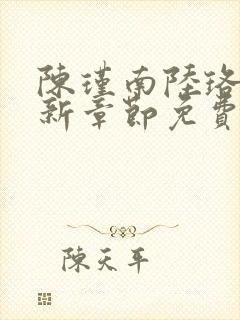 陳瑾南陸珞
新章節免費
陳天平